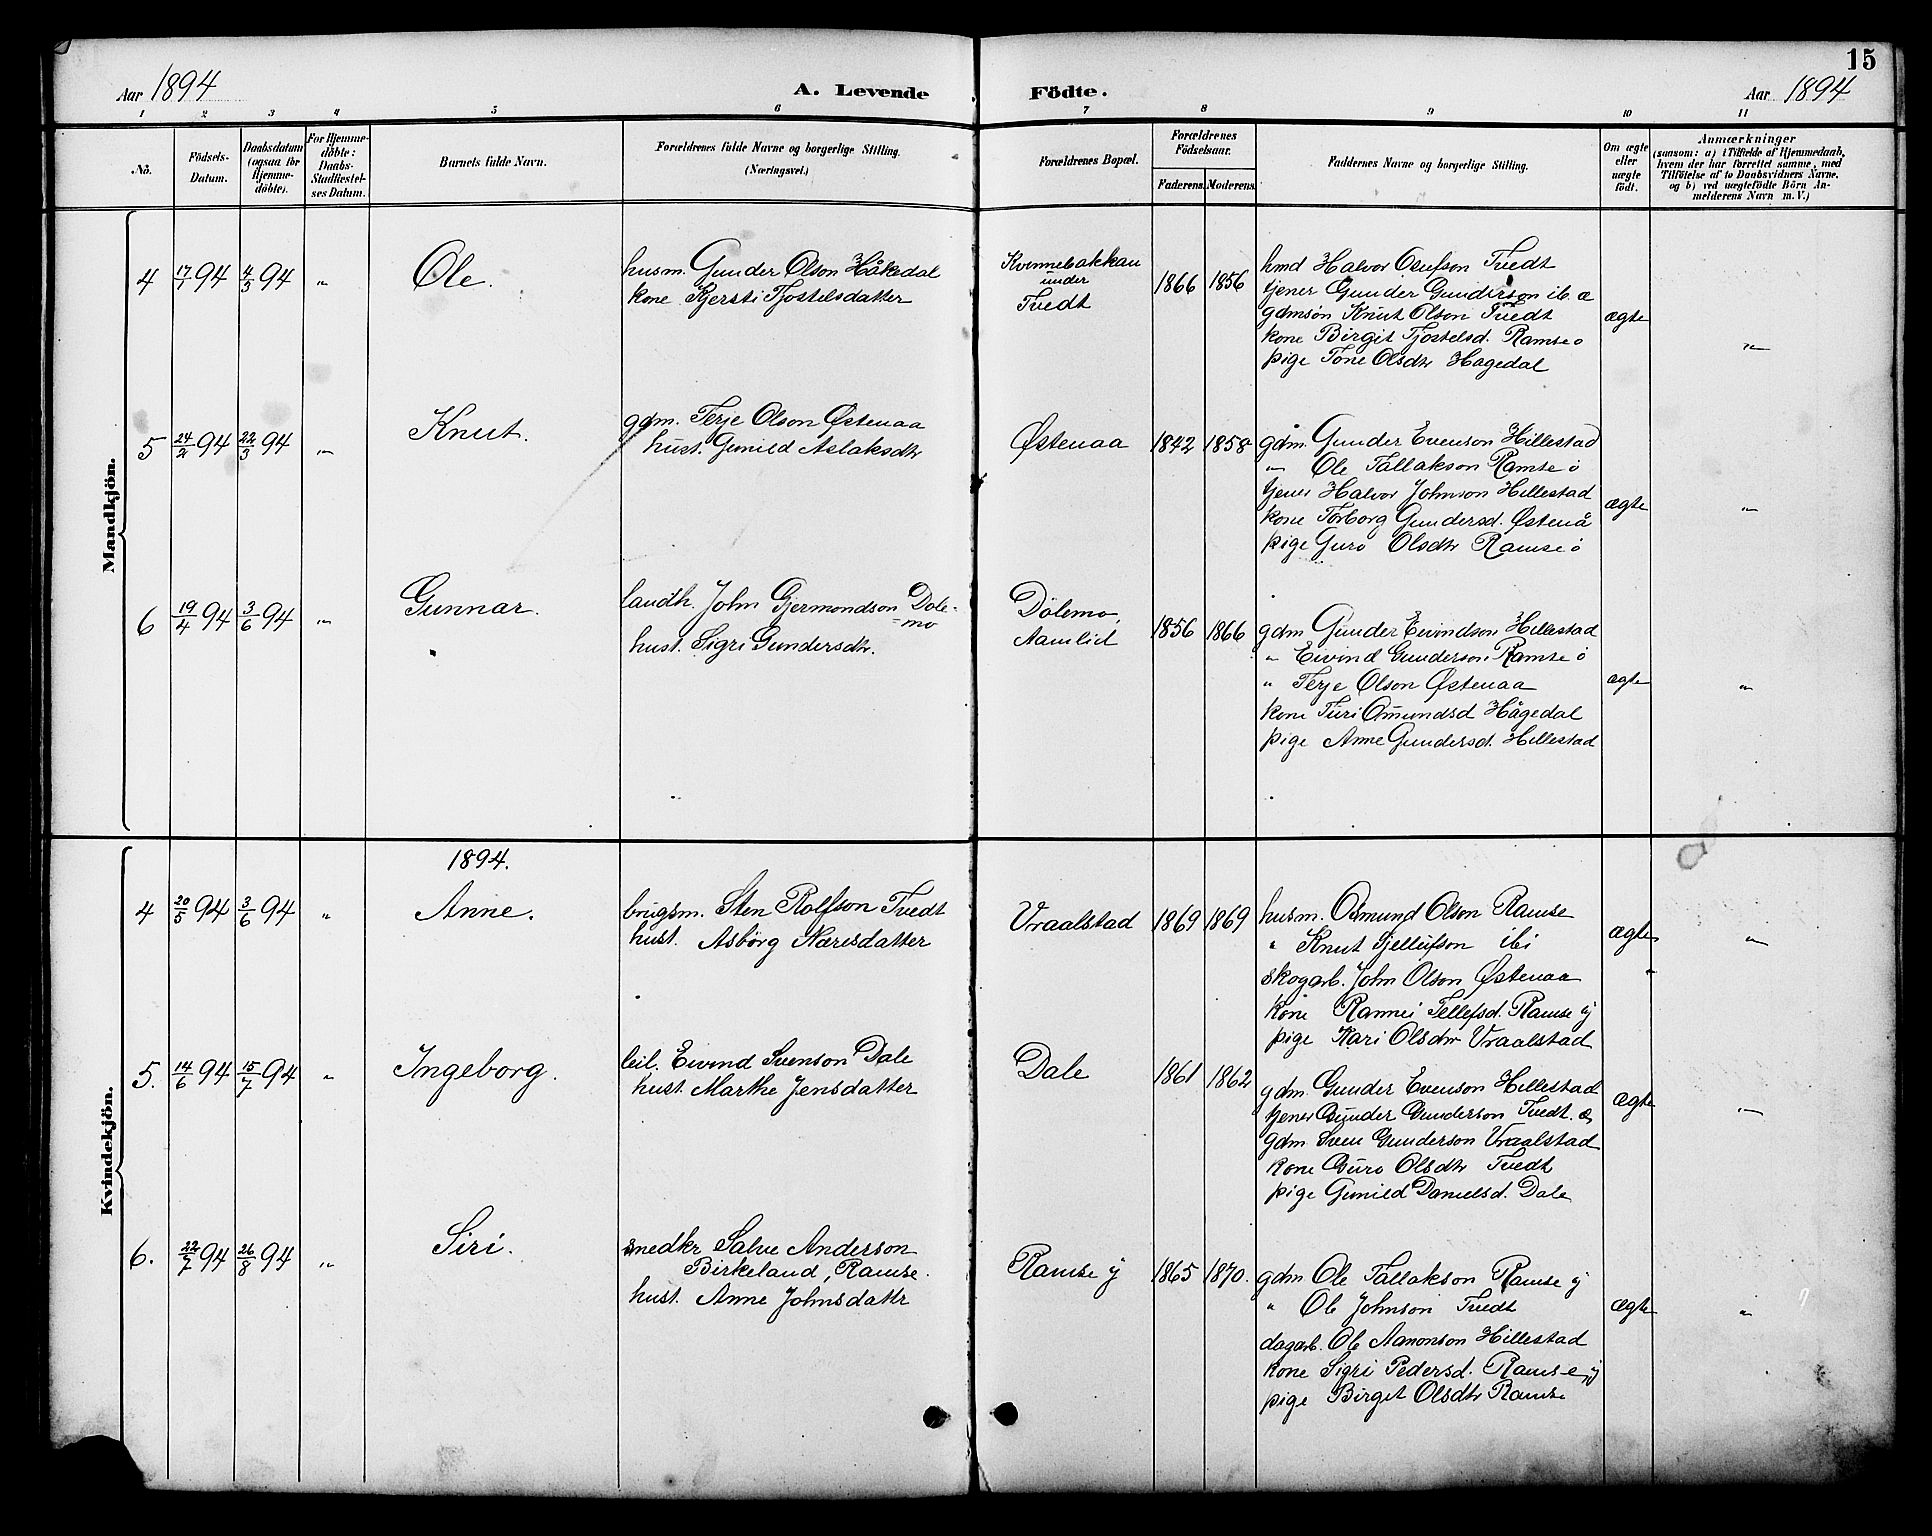 15
Aar 1894
A. Levende Födte.
Aar 1894
1 2 3 4 5 6 7 8 9 10 11
No.
Födsels-Datum.
Daabsdatum (ogsaa for Hjemme-döbte).
For Hjemme-döbte: Daabs-Stadfæstel-ses Datum.
Barnets fulde Navn.
Forældrenes fulde Navne og borgerlige Stilling.
(Næringsvei.)
Forældrenes Bopæl.
Forældrenes Födselsaar.
Faderens. Moderens.
Faddernes Navne og borgerlige Stilling.
Om ægte eller uægte födt.
Anmærkninger
(saasom: a) i Tilfælde af Hjemmedaab,
hvem der har forrettet samme, med
Tilföielse af to Daabsvidners Navne,
og b) ved uægtefödte Börn An-
melderens Navn m. V.)
Mandkjön.
4 17/1 94 4/3 94 "
Ole.
husm. Gunder Olson Håkedal
kone Kjersti Tjostelsdatter
Kvennebakkan
under
Tvedt
1866 1856
hmd Halvor Olufson Tvedt
tjener Gunder Gunderson ib. æ
gdmsön Knut Olson Tvedt
kone Birgit Tjostelsd. Ramse o
pige Tone Olsdtr Hagedal
ægte
"
5 24/2 94 22/3 94 "
Knut.
gdm. Terje Olson Østenaa
hust. Gunild Aslaksdtr
Østenaa
1842 1858
gdm. Gunder Evenson Hillestad
" Ole Tallakson Ramse ö
tjener Halvor Johnson Hillestad
kone Torborg Gundersd. Østenå
pige Guro Olsdtr Ramse ö
ægte
"
6 19/4 94 3/6 94 "
Gunnar.
landh. John Gjermondson Dole-
=mo
hust. Sigri Gundersdtr.
Dölemo,
Aamlid
1856 1866
gdm Gunder Eivindson Hillestad
" Eivind Gunderson Ramse ö
" Terje Olson Østenaa
kone Turi Omundsd Hågedal
pige Anne Gundersd. Hillestad
ægte
"
Kvindekjön.
1894.
4 20/5 94 3/6 94 "
Anne.
brugsm. Sten Rolfson Tvedt
hust. Asbörg Næresdatter
Vraalstad
1869 1869
husm. Osmund Olson Ramse
" Knut Tjellufson ibi
skogarb. John Olson Østenaa
kone Rannei Tellefsd. Ramse ÿ
pige Kari Olsdtr Vraalstad
ægte
"
5. 14/6 94 15/7 94 "
Ingeborg.
leil. Eivind Svenson Dale
hust. Marthe Jensdatter
Dale
1861 1862
gdm. Gunder Evenson Hillestad
tjener Gunder Gunderson Tvedt. æ
gdm Sven Gunderson Vraalstad
kone Guro Olsdtr Tvedt
pige Gunild Danielsd. Dale
ægte
"
6. 22/7 94 26/8 94 "
Siri.
snedkr Salve Anderson
Birkeland, Ramse.
hust. Anne Johnsdattr
Ramse ÿ
1865 1870.
gdm Ole Tallakson Ramse ÿ
" Ole Johnson Tvedt
dagarb. Ole Aanonson Hillestad
kone Sigri Pedersd. Ramse ÿ
pige Birget Olsdtr Ramse
ægte
"